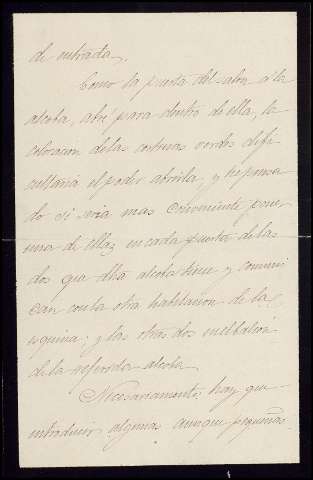 de entrada.
Como la puerta del salon á la
alcoba, abre para dentro de ella, la
colocacion de las cortinas verdes difi
cultaria el poder abrirla, y he pensa
do si seria mas conveniente poner
una de ellas en cada puerta de las
dos que dha alcoba tiene y comuni
can con la otra habitacion de la
esquina; y las otras dos en el balcon
de la referida alcoba.
Necesariamente hay que
introducir algunas aunque pequeñas